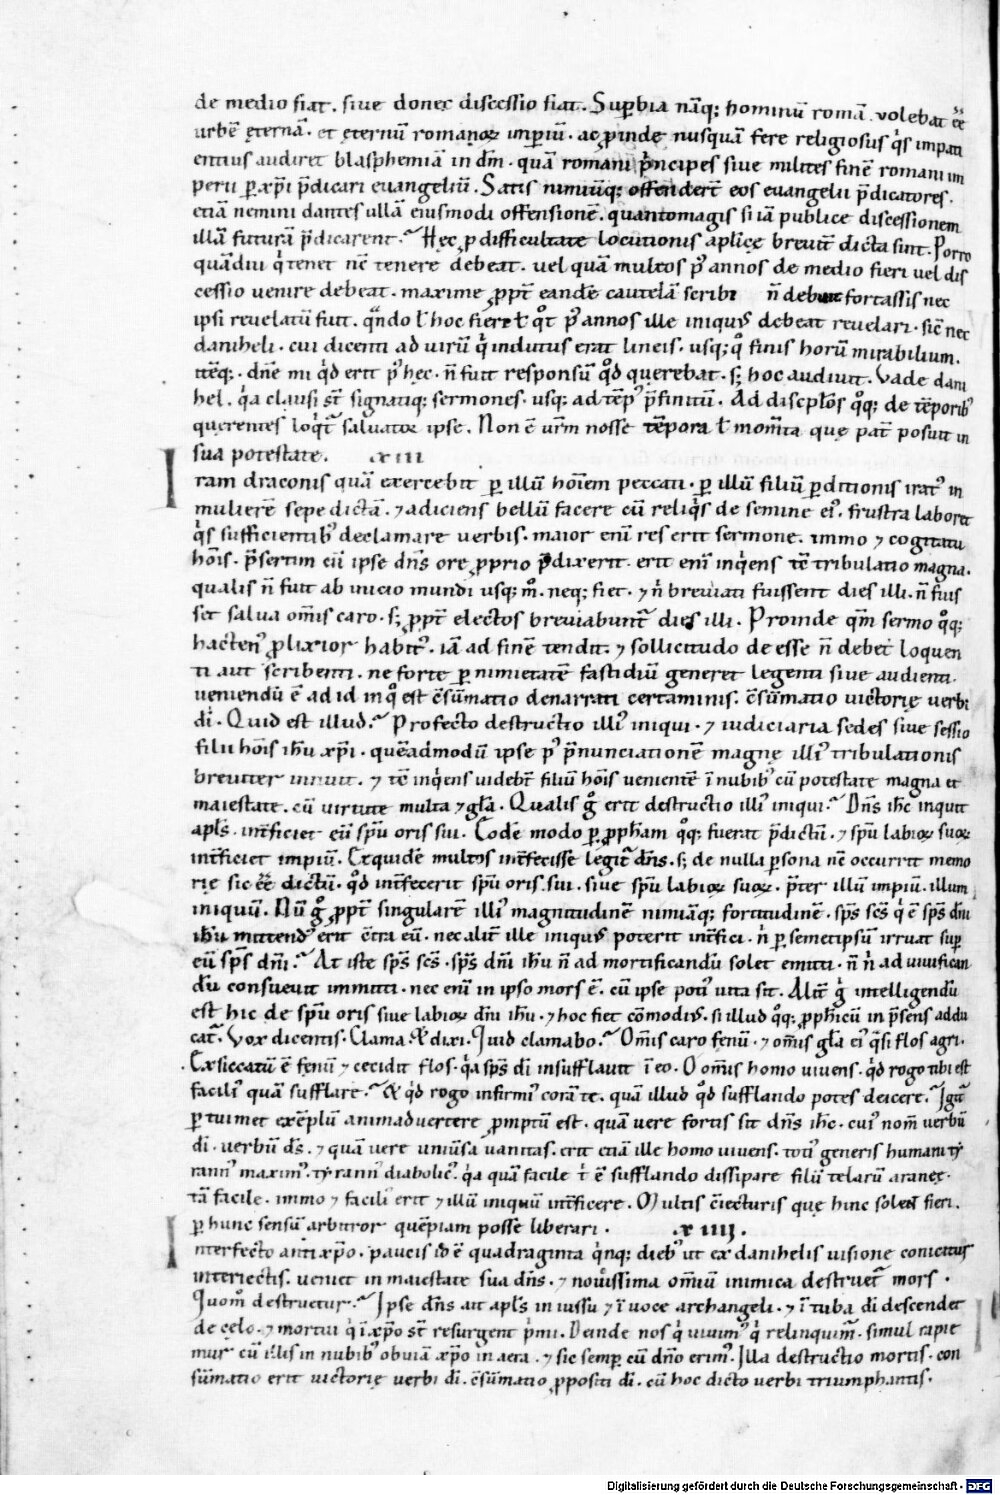 de medio fiat. siue donec discessio fiat. Supbia nāq; hominū romā uolebat eē̄
urbē ęternā. et ęternū romanoꝝ imperiū. ac ꝓinde nusquā fere religiosus q̇s impati
entius audiret blasphemiā in dm̄. quā romani p̄ncipes siue milites finē romani im
perii ꝑ xp̄i p̄dicari euangeliū. Satis nimiūq; offendert̄ eos euangelii p̄dicatores.
etiā nemini dantes ullā eiusmodi offensionē. quantomagis si iā publice discessionem
illā futurā p̄dicarent. Hęc ꝓ difficultate locutionis aplicę breuit̄ dicta sint. Porro
quādiu q̇ tenet nc̄ tenere debeat. uel quā multos p᾽ annos de medio fieri uel dis
cessio uenire debeat. maxime ꝓpt̄ eandē cautelā scribi n̄ debuit fortassis nec
ipsi reuelatū fuit. qn̄do ł hoc fieret ł q̊t p᾽ annos ille iniquus debeat reuelari. sic̄ nec
daniheli. cui dicenti ad uirū q̇ indutus erat lineis. usq; q̊ finis horū mirabilium.
itēq;. dn̄e mi q̇d erit p᾽ hęc. n̄ fuit responsū q̊d querebat. s; hoc audiuit. Vade dani
hel. q̇a clausi st̄ signatiq; sermones. usq; ad tēp᾽ p̄finitū. Ad discipłos q̊q; de tēporib᾽
querentes loq̇t᾽ saluator ipse. Non ē ur̄m nosse tēpora ł mom̄ta quę pat̄ posuit in
sua potestate. xiii
Iram draconis quā exercebit ꝑ illū hoīem peccati. ꝑ illū filiū ꝑditionis irat᾽ in
mulierē sepe dictā. ⁊ adiciens bellū facere cū reliq̇s de semine ei᾽. frustra laboret
q̇s sufficientib᾽ declamare uerbis. maior eni᾽ res erit sermone. immo ⁊ cogitatu
hoīs. p̄sertim cū ipse dn̄s ore ꝓprio p̄dixerit. erit eni᾽ inq̇ens tē tribulatio magna.
qualis n̄ fuit ab inicio mundi usq; m̊. neq; fiet. ⁊ n̄ breuiati fuissent dies illi. n̄ fuis
set salua om̄is caro. s; ꝓpt̄ electos breuiabunt᾽ dies illi. Proinde qm̄ sermo q̊q;
hacten᾽ ꝓlixior habit᾽. iā ad finē tendit. ⁊ sollicitudo de esse n̄ debet loquen
ti aut scribenti. ne forte ꝑ nimietatē fastidiū generet legenti siue audienti.
ueniendū ē ad id in q̊ est c̄sūmatio denarrati certaminis. c̄sūmatio uictorię uerbi
di᾽. Quid est illud. Profecto destructio illi᾽ iniqui. ⁊ iudiciaria sedes siue sessio
filii hoīs ih̄u xp̄i. quēadmodū ipse p᾽ p̄nunciationē magnę illi᾽ tribulationis
breuiter innuit. ⁊ tē inq̇ens uidebt̄ filiū hoīs uenientē ī nubib᾽ cū potestate magna et
maiestate. cū uirtute multa ⁊ gła. Qualis g̊ erit destructio illi᾽ iniqui. Dn̄s ih̄c inquit
apłs. int̄ficiet eū spū oris sui. Eodē modo ꝑ ꝓpham q̊q; fuerat p̄dictū. ⁊ spū labioꝝ suoꝝ
int̄ficiet impiū. Et quidē multos int̄fecisse legit᾽ dn̄s. s; de nulla ꝑsona nc̄ occurrit memo
rię sic eē̄ dictū. q̊d int̄fecerit spū oris sui. siue spū labioꝝ suoꝝ. p̄ter illū impiū. illum
iniquū. Nū g̊ ꝓpt̄ singularē illi᾽ magnitudinē nimiāq; fortitudinē. sp̄s sc̄s q̇ ē sp̄s dn̄i
ih̄u mittend᾽ erit c̄tra eū. nec alit̄ ille iniquus poterit int̄fici. n̄ ꝑ semetipsū irruat suꝑ
eū sp̄s dn̄i. At iste sp̄s sc̄s. sp̄s dn̄i ih̄u n̄ ad mortificandū solet emitti. n̄ n̄ ad uiuifican
dū consueuit immitti. nec eni᾽ in ipso mors ē. cū ipse poti᾽ uita sit. Alit̄ g̊ intelligendū
est hic de spū oris siue labioꝝ dn̄i ih̄u. ⁊ hoc fiet cōmodi᾽. si illud q̊q; ꝓph̄icū in p̄sens addu
cat᾽. Vox dicentis. Clama. Et dixi. Quid clamabo. Om̄is caro fenū. ⁊ om̄is gła ei᾽ q̇si flos agri.
Exsiccatū ē fęnū ⁊ cecidit flos. q̇a sp̄s di᾽ insufflauit ī eo. O om̄is homo uiuens. q̇d rogo tibi est
facili᾽ quā sufflare. Et q̇d rogo infirmi᾽ corā te. quā illud q̊d sufflando potes deicere. Igit᾽
ꝑ tuimet exēplū animaduertere ꝓmptū est. quā uere fortis sit dn̄s ih̄c. cui᾽ nom̄ uerbū
di᾽. uerbū ds̄. ⁊ quā uere uniūsa uanitas. erit etiā ille homo uiuens. toti᾽ generis humani ty
rann᾽ maxim᾽. tyrann᾽ diabolic᾽. q̇a quā facile t᾽ ē sufflando dissipare filū telarū aranee.
tā facile. immo ⁊ facili᾽ erit ⁊ illū iniquū int̄ficere. Multis c̄iecturis quę hinc solent fieri.
ꝑ hunc sensū arbitror quēpiam posse liberari. xiiij.
Interfecto antixp̄o. paucis id ē quadraginta q̇nq; dieb᾽ ut ex danihelis uisione conicitur
interiectis. ueniet in maiestate sua dn̄s. ⁊ nouissima omniū inimica destruet᾽ mors.
Quom̊ destruetur. Ipse dn̄s ait apłs in iussu ⁊ ī uoce archangeli. ⁊ ī tuba di᾽ descendet
de cęlo. ⁊ mortui q̇ ī xp̄o st̄ resurgent p̄mi. Deinde nos q̇ uiuim᾽ q̇ relinquim᾽. simul rapie
mur cū illis in nubib᾽ obuiā xp̄o in aera. ⁊ sic semꝑ cū dn̄o erim᾽. Illa destructio mortis. con
sūmatio erit uictorię uerbi di᾽. c̄sūmatio ꝓpositi di᾽. cū hoc dicto uerbi triumphantis.
Digitalisierung gefördert durch die Deutsche Forschungsgemeinschaft - DFG